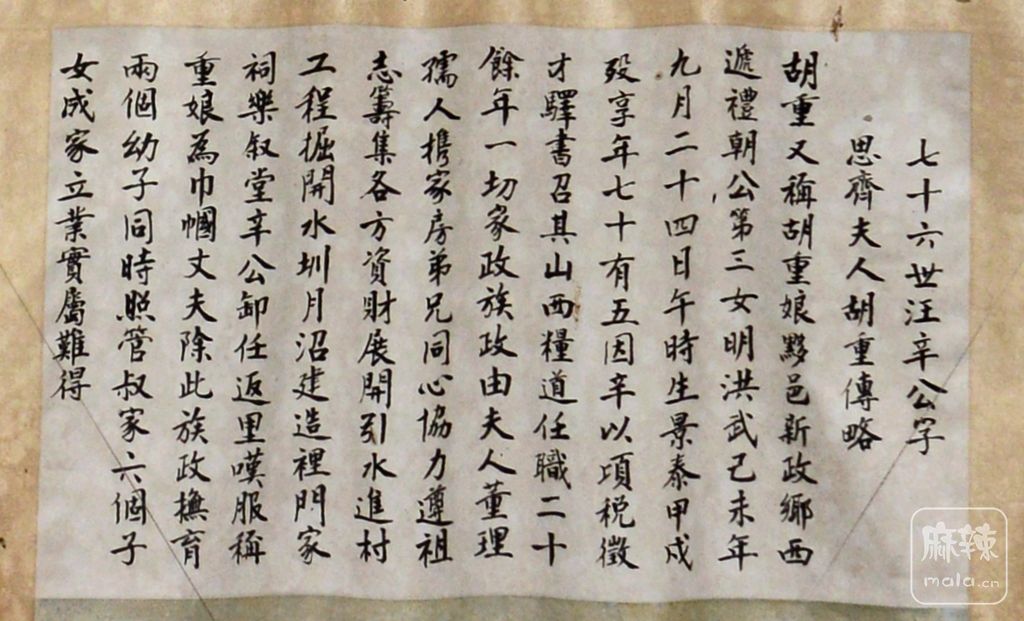 七十六世汪辛公字
思齊夫人胡重傳略
胡重又稱胡重娘黟邑新政鄉西
遞禮朝公第三女明洪武己未年
九月二十四日午時生景泰甲戌
殁享年七十有五因辛以項税徵
才驛書召其山西糧道任職二十
餘年一切家政族政由夫人董理
孺人攜家房弟兄同心協力遵祖
志籌集各方資財展開引水進村
工程掘開水圳月沼建造裡門家
祠樂叙堂辛公卸任返里嘆服稱
重娘為巾幗丈夫除此族政撫育
兩個幼子同時照管叔家六個子
女成家立業實屬難得
麻辣
mala.cn